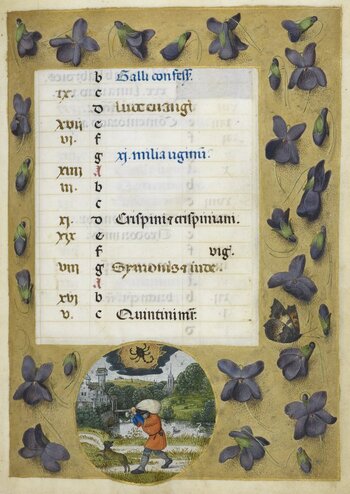 b Galli confess.
ix. c
d Luce euangl
xvii e
vi. f
g xj. milia uginu.
xiiii A
iii. b
c
xi. d Crispini et crispiniani.
xix e
f vig.
viii g Symonis et iude.
A
xvi b
v. c Quintini mr.